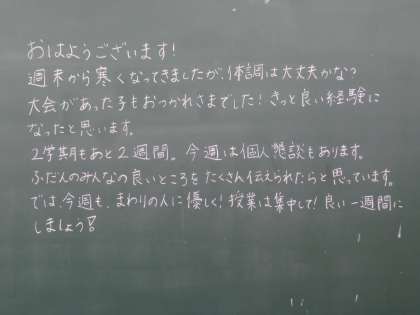 おはようございます!
週末から寒くなってきましたが、体調は大丈夫かな?
大会があった子もおつかれさまでした!きっと良い経験に
なったと思います。
2学期もあと2週間。今週は個人懇談もあります。
ふだんのみんなの良いところをたくさん伝えられたらと思っています。
では、今週も、まわりの人に優しく!授業は集中して!良い一週間に
しましょう!